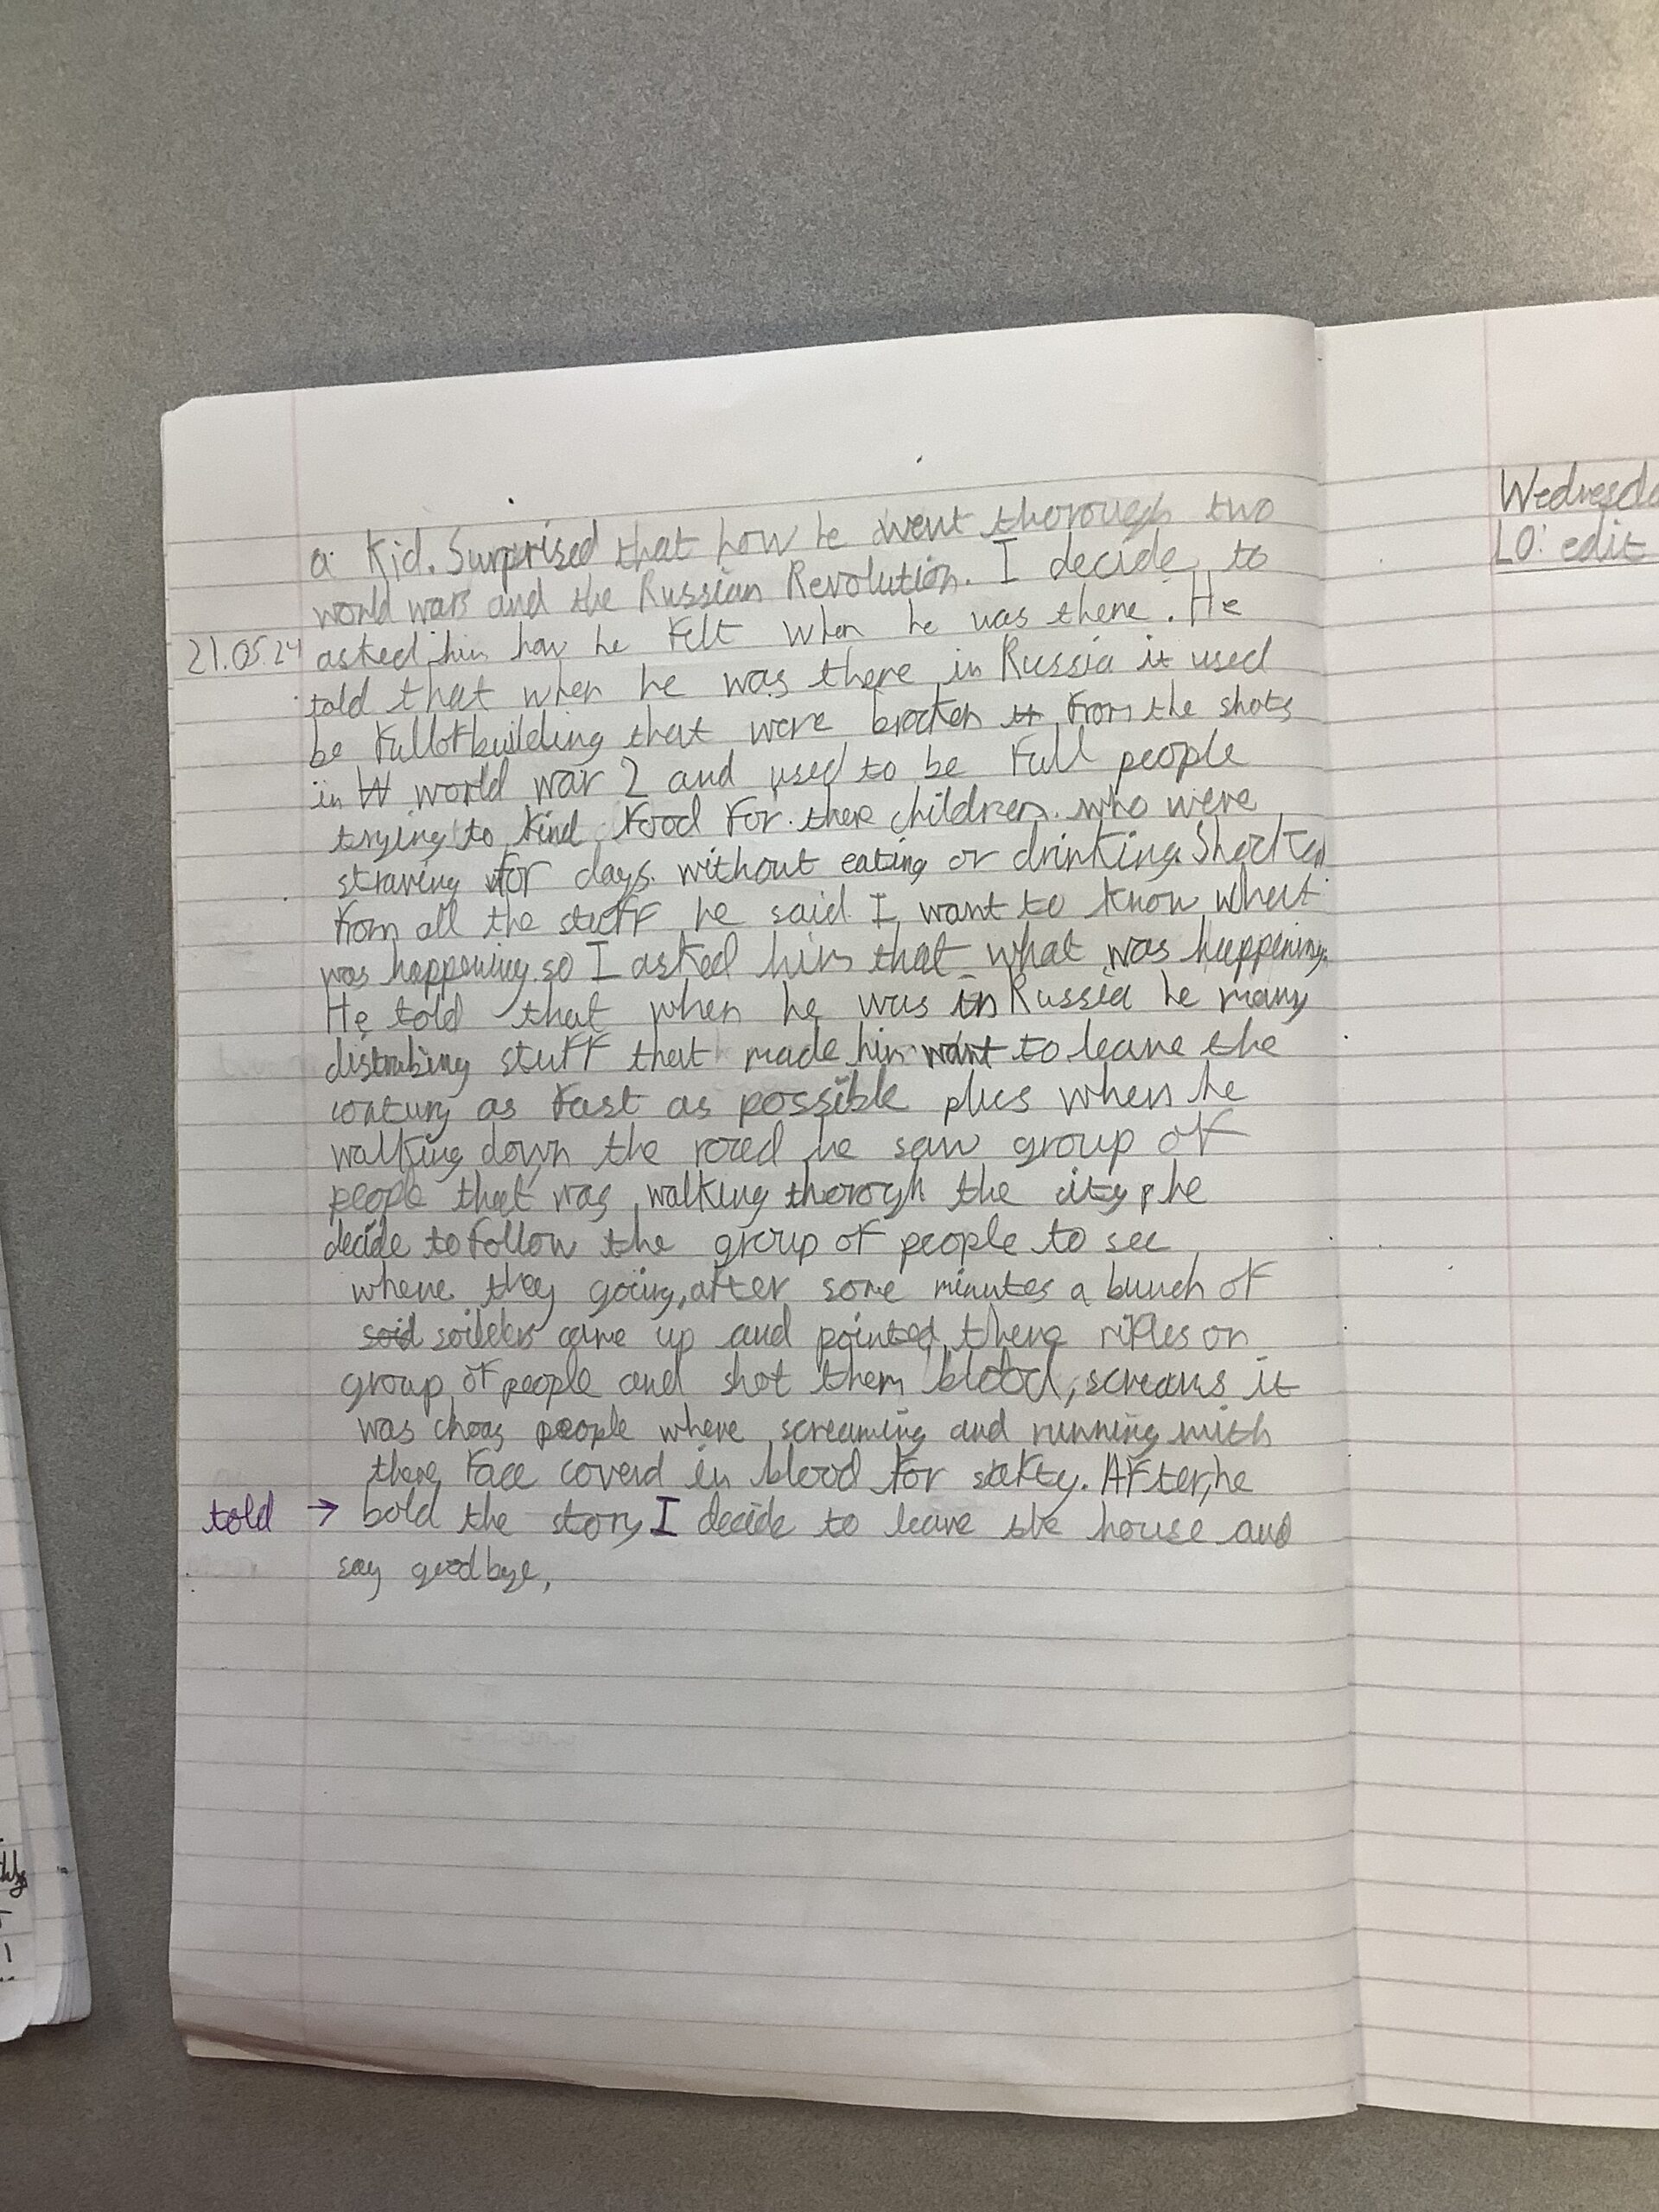 a kid. Surprised that how he went thorough two
world wars and the Russian Revolution. I decide to
21.05.24 asked him how he felt when he was there. He
told that when he was there in Russia it used
be full of building that were brocken from the shots
in world war 2 and used to be full people
trying to find food for there children who were
straving for days without eating or drinking. Shocked
from all the stuff he said I want to know what
was happening so I asked him that what was happening.
He told that when he was in Russia he many
distrubing stuff that made him want to leave the
contury as fast as possible plus when he
walking down the roed he saw group of
people that was walking thorogh the city, he
decide to follow the group of people to see
where they going, after some minutes a bunch of
soilders came up and pointed there rifles on
group of people and shot them blood, screams it
was choas people where screaming and running with
there face coverd in blood for safty. After, he
told → bold the story I decide to leave the house and
say goodbye,
Wednesda
LO: edit